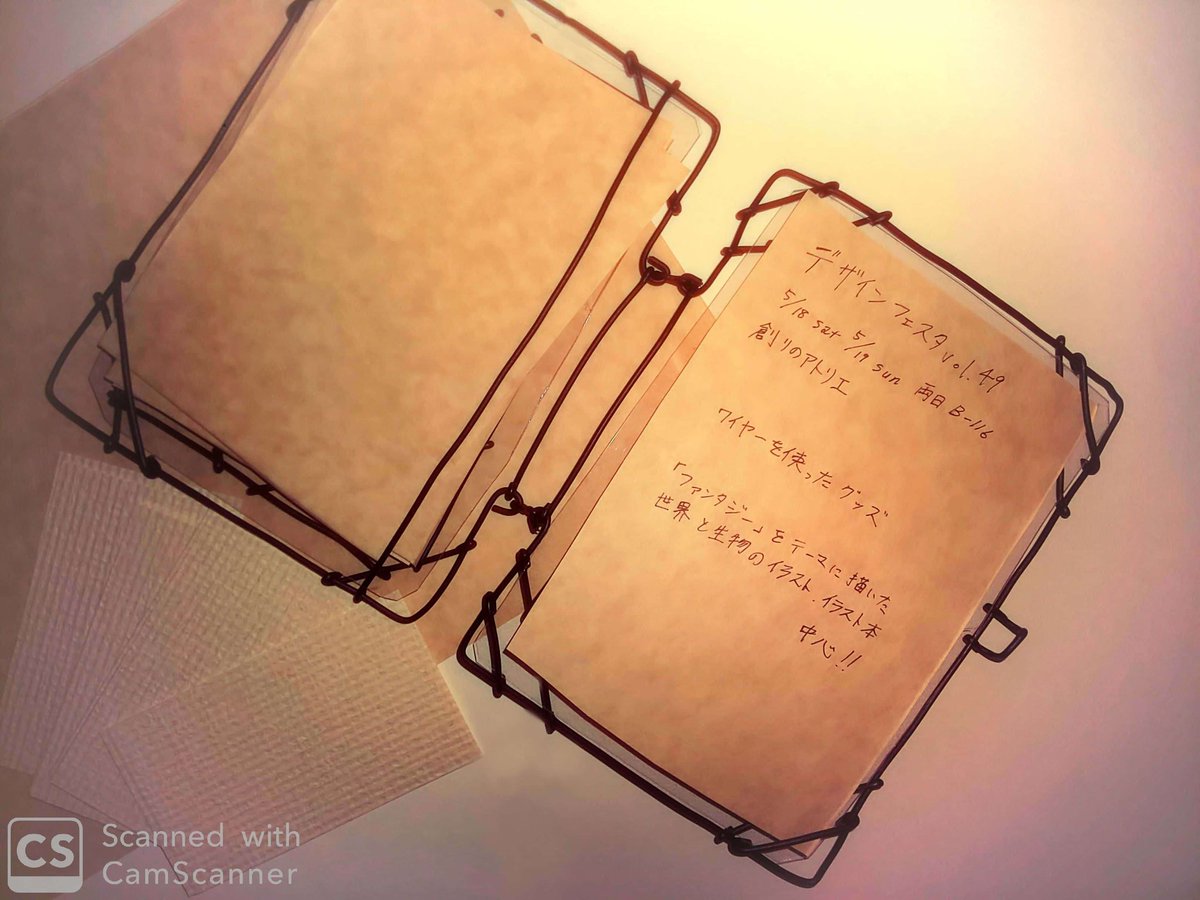 デザインフェスタ vol.49
5/18 sat 5/19 sun 両日 B-116
創りのアトリエ
ワイヤーを使った グッズ
「ファンタジー」をテーマに描いた
世界と生物のイラスト.イラスト本
中心!!
CS
Scanned with
CamScanner